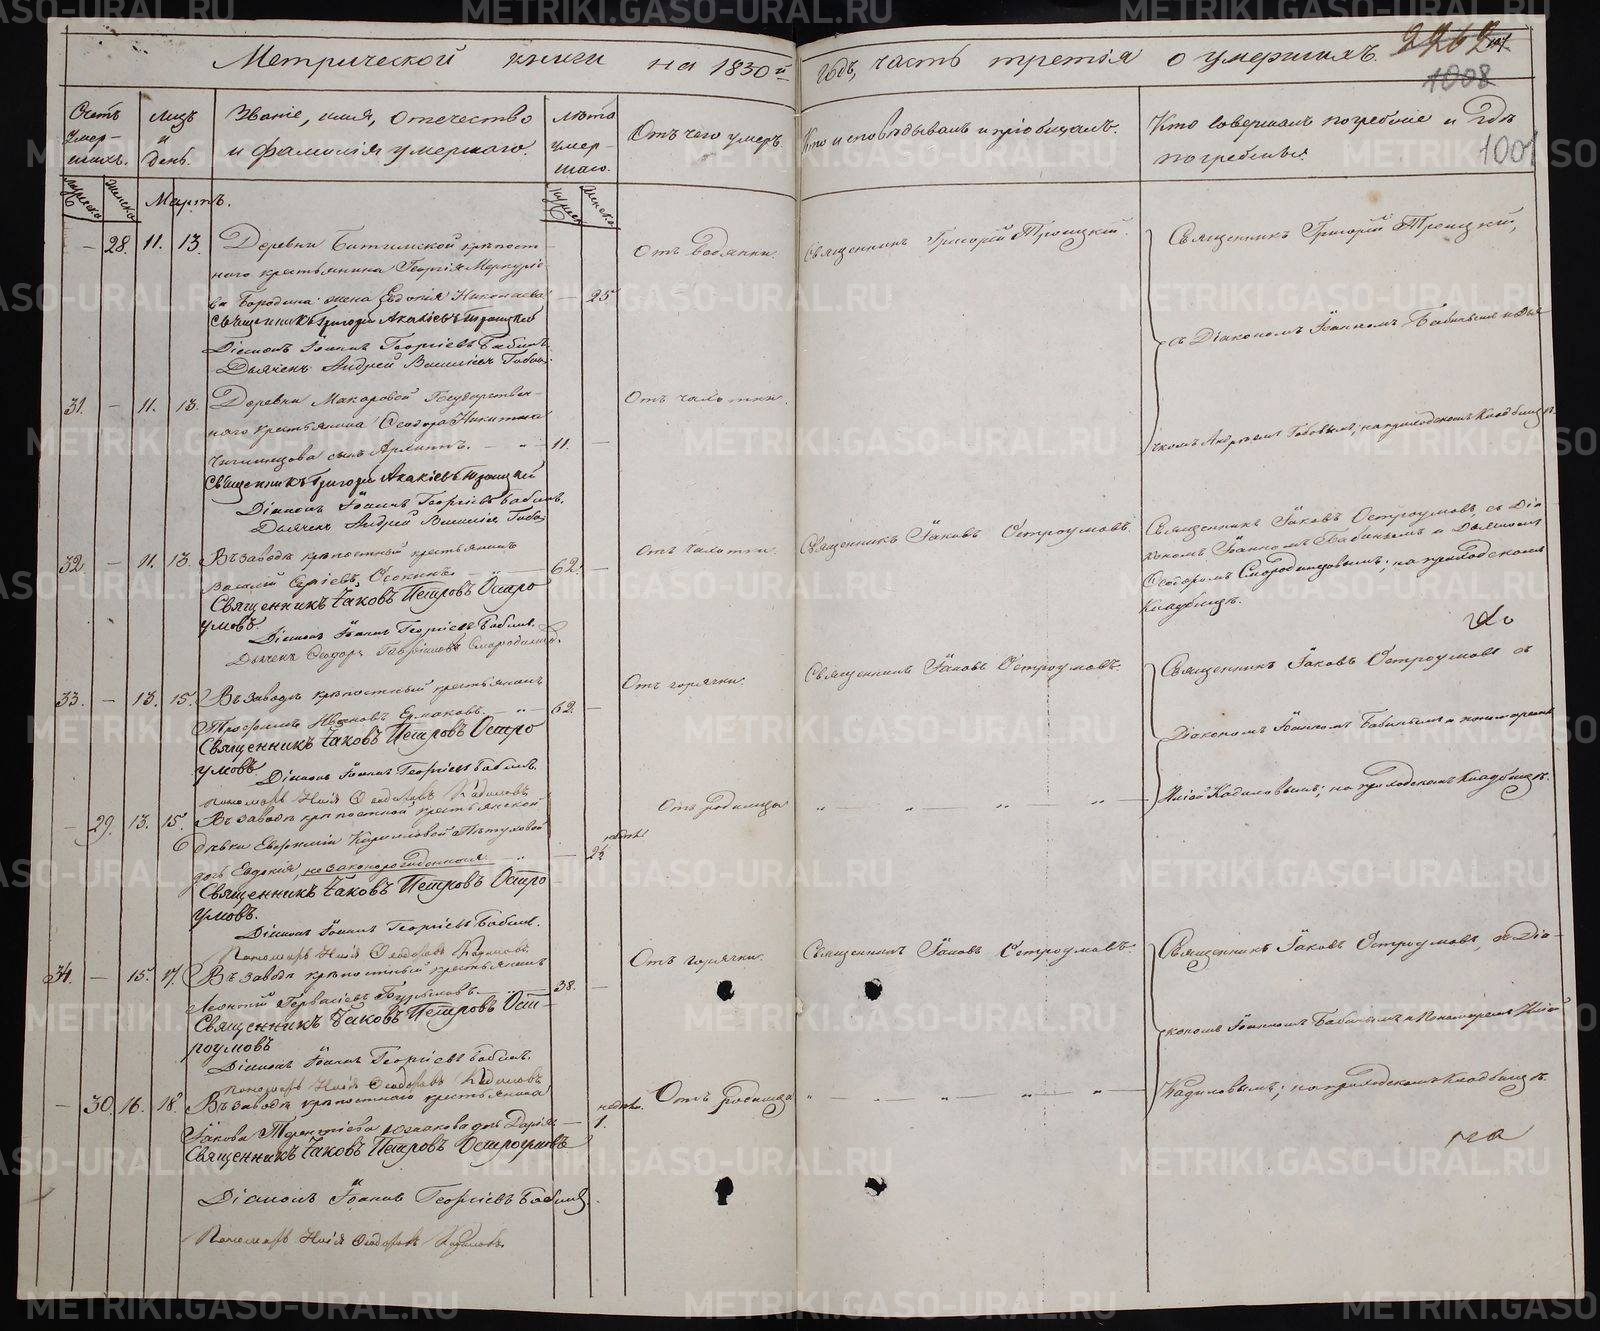 Метрической книги на 1830й годъ, часть третія о умершихъ.
2262
1008
1007
Счетъ умер-шихъ.
Мцъ и день.
Званіе, имя, отечество
и фамилія умершаго.
лѣта умер-шаго.
Отъ чего умеръ.
Кто исповѣдывалъ и пріобщалъ.
Кто совершалъ погребеніе и гдѣ
погребены.
Мартъ.
28. 11. 13. Деревни крѣпост-
наго крестьянина Георгія Меркуріе-
ва Бородина жена Евдокія Николаева 25
Отъ водянки.
Священникъ Григорій Троицкій.
Священникъ Григорій Троицкій,
съ Діакономъ Іоанномъ Бабинымъ и Дья
чкомъ Андреемъ Бобовымъ; на приходскомъ кладбищѣ.
Священникъ Григорій Акакіевъ Троицкій
Діаконъ Іоаннъ Георгіевъ Бабинъ.
Дьячекъ Андрей
31. 11. 13. Деревни Макаровой Государствен-
наго крестьянина Ѳеодора Никитина
сынъ 11.
Отъ чахотки.
Священникъ Григорій Акакіевъ Троицкій
Діаконъ Іоаннъ Георгіевъ Бабинъ.
Дьячекъ Андрей
32 11. 13. Въ заводѣ крѣпостный крестьянинъ
Василій Сергѣевъ Осокинъ. 62.
Отъ чахотки.
Священникъ Іаковъ Остроумовъ.
Священникъ Іаковъ Остроумовъ, съ Діа
кономъ Іоанномъ Бабинымъ и Дьячкомъ
Ѳеодоромъ Смородинцовымъ; на приходскомъ
кладбищѣ.
Священникъ Іаковъ Петровъ Остро
умовъ
Діаконъ Іоаннъ Георгіевъ Бабинъ.
Дьячекъ Ѳеодоръ Гавріиловъ
33. 13. 15. Въ заводѣ крѣпостный крестьянинъ
Трофимъ Ивановъ Ермаковъ. 62.
Отъ горячки.
Священникъ Іаковъ Остроумовъ.
Священникъ Іаковъ Остроумовъ съ
Діакономъ Іоанномъ Бабинымъ и пономаремъ
Иліей Кадиловымъ; на приходскомъ кладбищѣ.
Священникъ Іаковъ Петровъ Остро
умовъ.
Діаконъ Іоаннъ Георгіевъ Бабинъ.
Пономарь Илія Ѳеодоровъ Кадиловъ
29. 13. 15. Въ заводѣ крѣпостной крестьянской
дѣвки Кирилловой Пѣтуховой
дочь Евдокія, незаконорожденная 2½
Отъ родимца
Священникъ Іаковъ Петровъ Остро
умовъ.
Діаконъ Іоаннъ Георгіевъ Бабинъ.
Пономарь Илія Ѳеодоровъ Кадиловъ.
34. 15. 17. Въ заводѣ крѣпостный крестьянинъ
Леонтій Гервасіевъ 38.
Отъ горячки.
Священникъ Іаковъ Остроумовъ.
Священникъ Іаковъ Остроумовъ, съ Діа-
кономъ Іоанномъ Бабинымъ и Пономаремъ Иліей
Кадиловымъ; на приходскомъ кладбищѣ.
Священникъ Іаковъ Петровъ Ост-
роумовъ
Діаконъ Іоаннъ Георгіевъ Бабинъ.
Пономарь Илія Ѳеодоровъ Кадиловъ
30. 16. 18. Въ заводѣ крѣпостнаго крестьянина
Іакова Терентіева дочь Дарія 1.
Отъ родимца
Священникъ Іаковъ Петровъ Остроумовъ
Діаконъ Іоаннъ Георгіевъ Бабинъ.
Пономарь Илія Ѳеодоровъ Кадиловъ.
METRIKI.GASO-URAL.RU